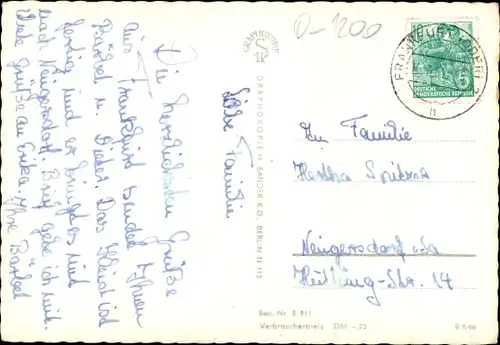 D-1200
FRANKFURT (ODER)
h
5
DEUTSCHE
DEMOKRATISCHE REPUBLIK
GRAPHOKOPIE
GRAPHOKOPIE H. SANDER K.G., BERLIN N 113
Liebe Familie
Die herzlichsten Grüße
aus Frankfurt sendet Ihnen
Bärbel u. Dieter. Das Kleid ist
fertig und er bringt es mit
nach Neugersdorf. Brief gebe ich mit.
Viele Grüße an Erika Ihre Bärbel
An Familie
Hertha
Neugersdorf i. Sa
-Str. 14
Best.-Nr. B 811
Verbraucherpreis DM -,20